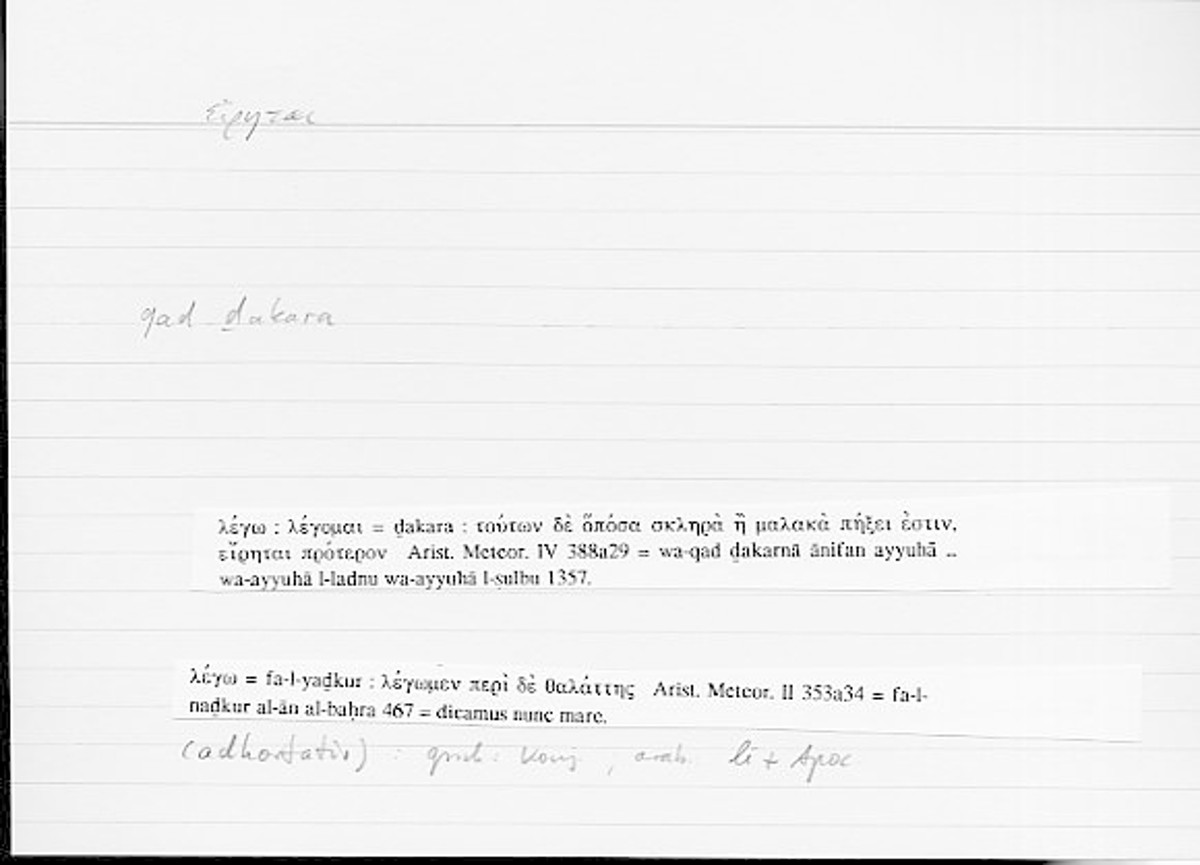 εἴρηται
qad ḏakara
λέγω : λέγομαι = ḏakara : τούτων δὲ ὁπόσα σκληρὰ ἢ μαλακὰ πήξει ἐστιν,
εἴρηται πρότερον Arist. Meteor. IV 388a29 = wa-qad ḏakarnā ānifan ayyuhā ..
wa-ayyuhā l-ladnu wa-ayyuhā l-ṣulbu 1357.
λέγω = fa-l-yaḏkur : λέγωμεν περὶ δὲ θαλάττης Arist. Meteor. II 353a34 = fa-l-
naḏkur al-ān al-baḥra 467 = dicamus nunc mare.
(adhortativ) : griech. Konj , arab. li + Apoc